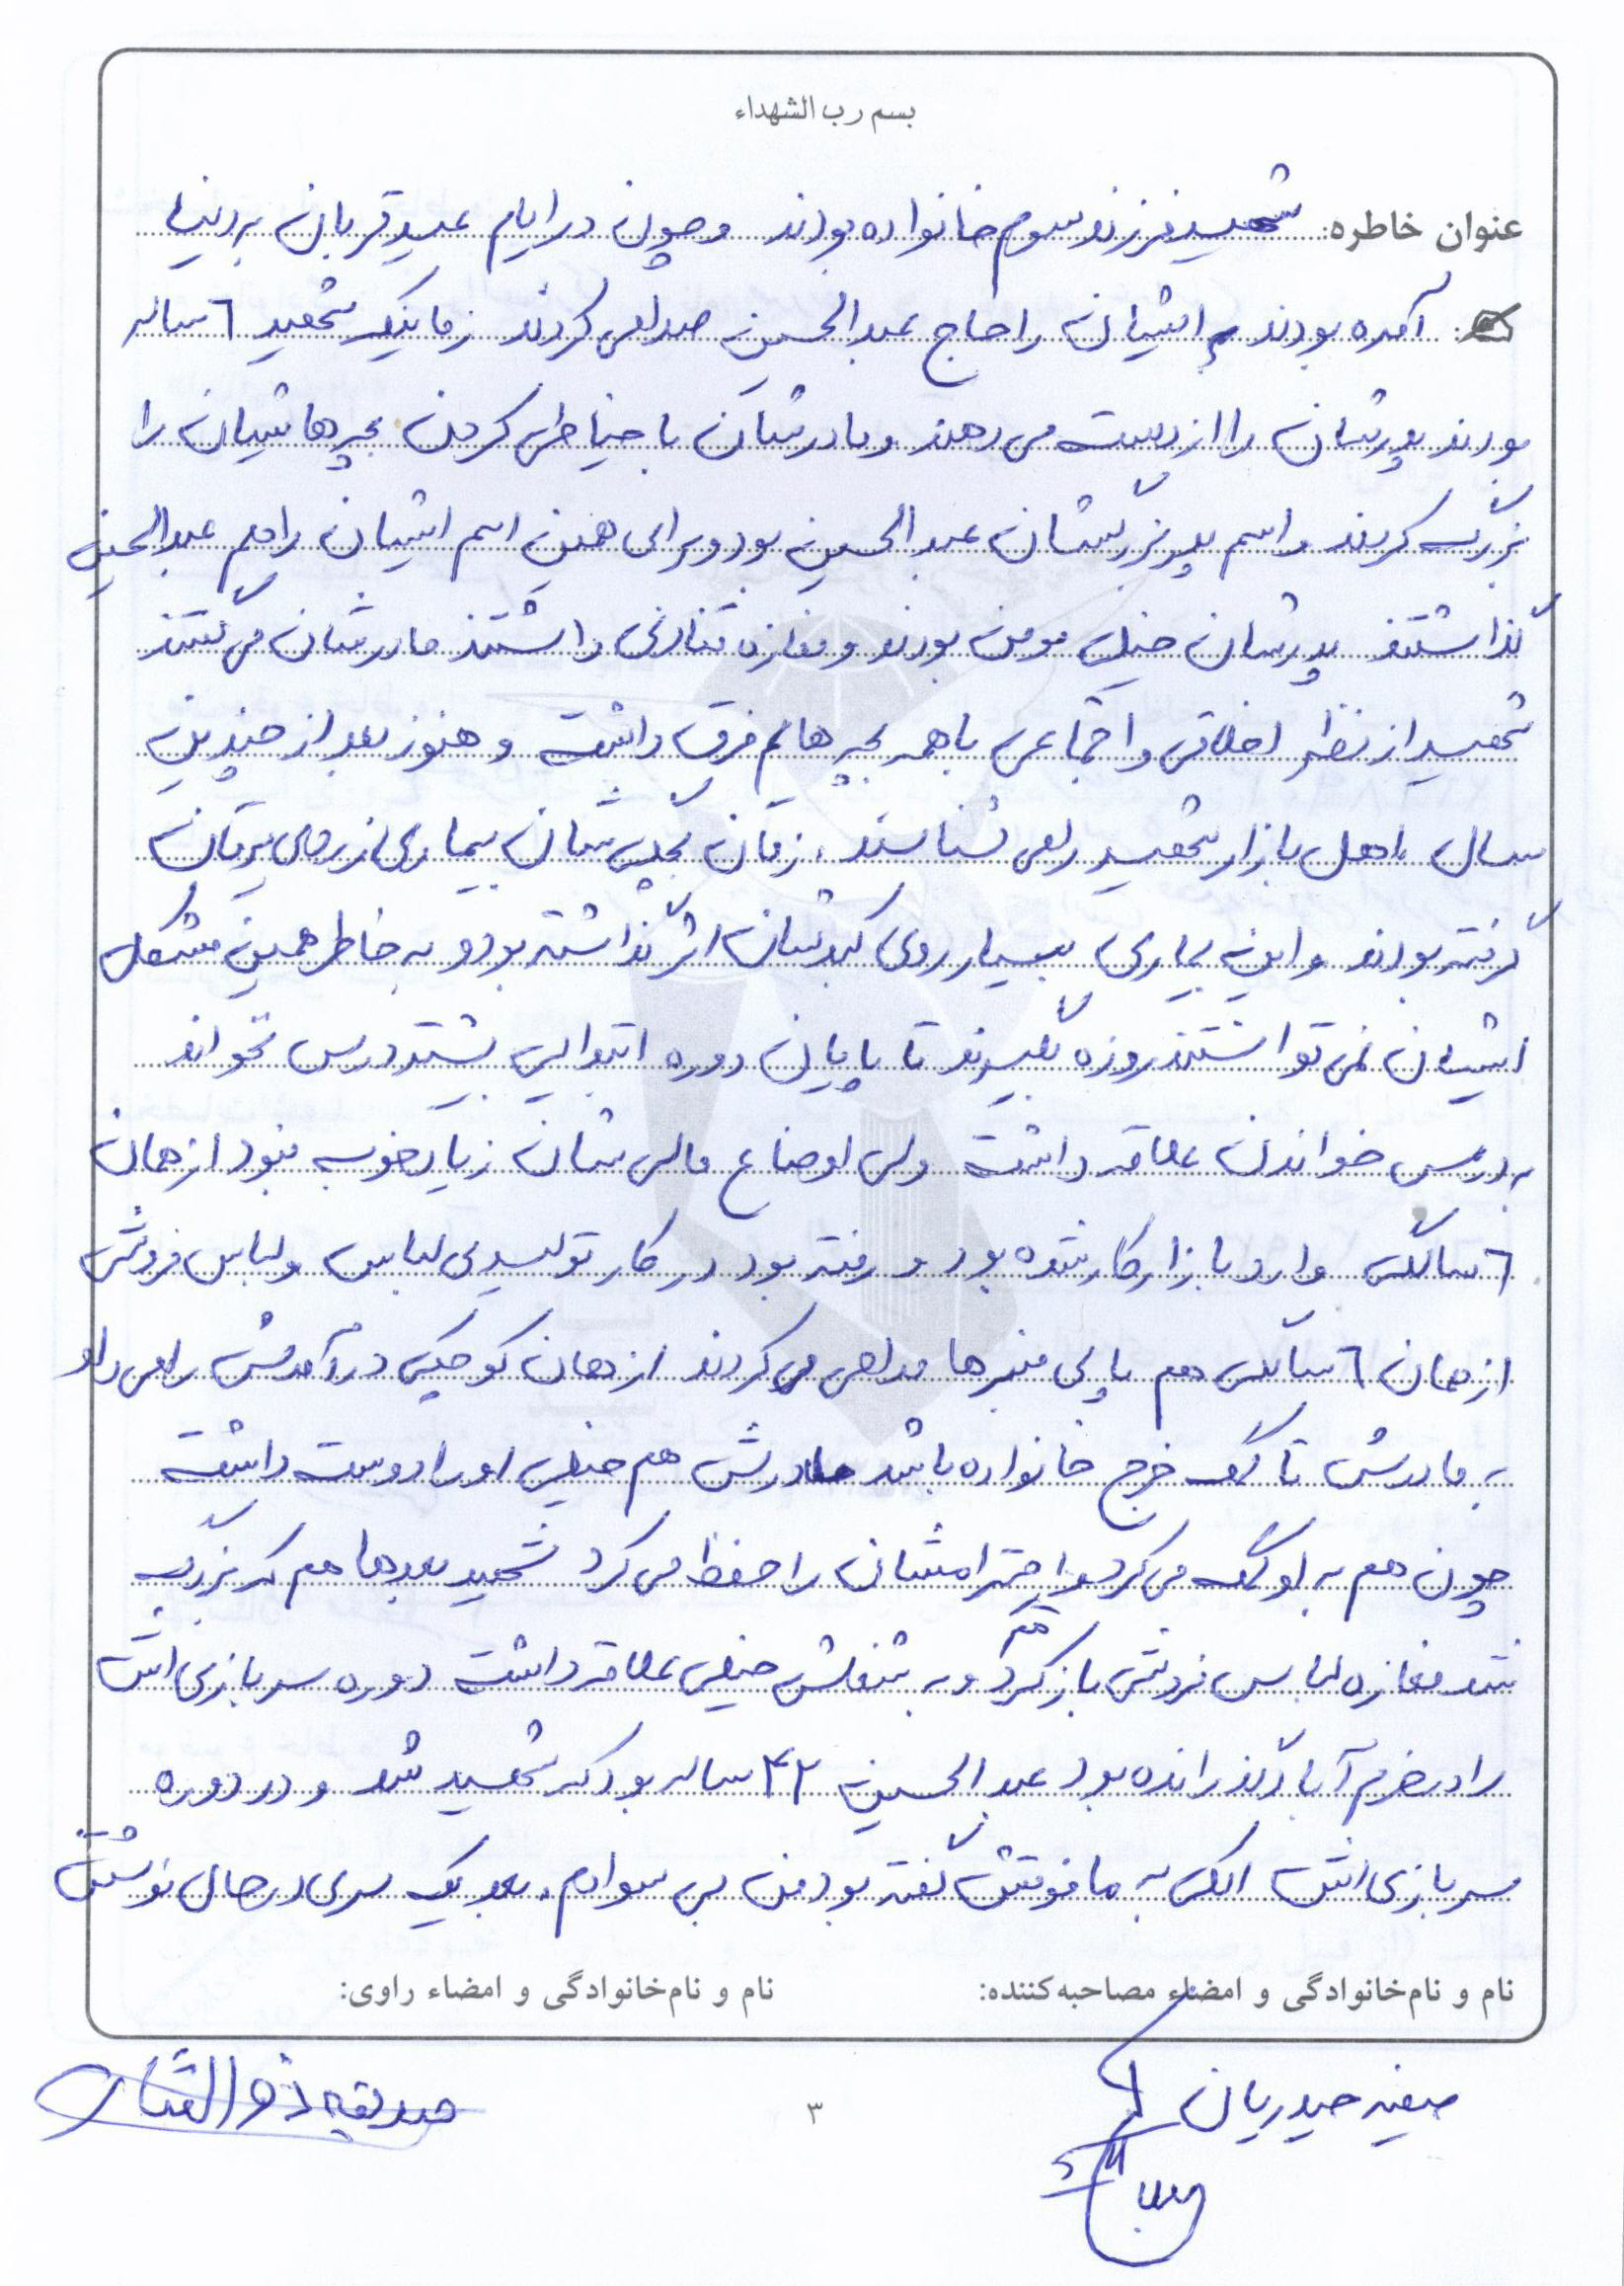 بسم رب الشهداء
عنوان خاطره: شهید فرزند سوم خانواده بودند و چون در ایام عید قربان بدنیا
آمده بودند ایشان را حاج عبدالحسین صدا می کردند زمانیکه شهید ٦ ساله
بودند پدرشان را از دست می دهند و مادرشان با خیاطی کردن بچه هاشان را
بزرگ کردند و اسم پدربزرگشان عبدالحسین بود و برای همین اسم ایشان را هم عبدالحسین
گذاشتند پدرشان خیلی مومن بودند و مغازه قنادی داشتند مادرشان می گفتند
شهید از نظر اخلاقی و اجتماعی با همه بچه هایم فرق داشت و هنوز بعد از چندین
سال اهل بازار شهید را می شناسند. زمان بچگی شان بیماری زردی یرقان
گرفته بودند و این بیماری بسیار روی کبدشان اثر گذاشته بود و به خاطر همین مشکل
ایشان نمی توانستند روزه بگیرند تا پایان دوره ابتدایی بیشتر درس نخواند
به درس خواندن علاقه داشت ولی اوضاع مالی شان زیاد خوب نبود از همان
٦ سالگی وارد بازار کار شده بود و رفته بود در کار تولیدی لباس و لباس فروشی
از همان ٦ سالگی هم پای منبرها مداحی می کردند از همان کوچیکی درآمدش را می داد
به مادرش تا کمک خرج خانواده باشد مادرش هم خیلی او را دوست داشت
چون هم به او کمک می کرد و احترامشان را حفظ می کرد شهید بعدها هم که بزرگ
شد مغازه لباس فروشی باز کرد هم و به شغلش خیلی علاقه داشت دوره سربازی اش
را در خرم آباد گذرانده بود عبدالحسین ۴۲ ساله بود که شهید شد و در دوره
سربازی اش الکی به مافوقش گفته بود من بی سوادم. بعد یک سری در حال نوشتن
نام و نام‌خانوادگی و امضاء مصاحبه‌کننده:
نام و نام‌خانوادگی و امضاء راوی:
صفیه حیدریان
صدیقه ذوالفقار
۳